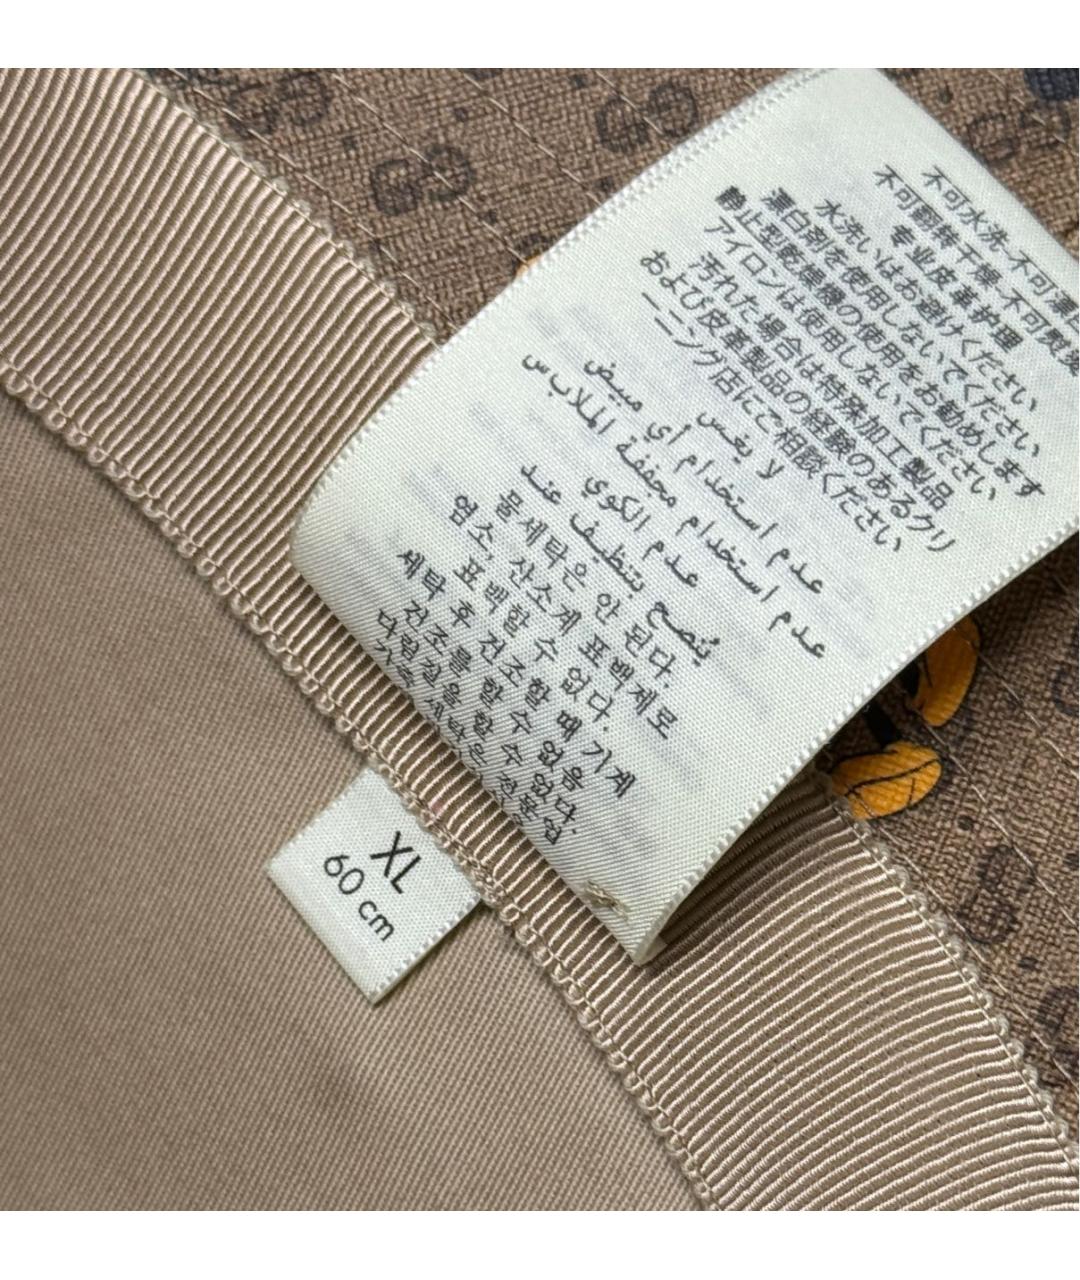 不可水洗-不可漂
不可翻转干燥-不可熨烫
专业皮革护理
水洗いはお避けください
漂白剤を使用しないでください
静止型乾燥機の使用をお勧めします
アイロンは使用しないでください
汚れた場合は特殊加工製品
および皮革製品の経験のあるクリ
ーニング店にご相談ください
لا يغسل
عدم استخدام أي مبيض
عدم استخدام مجففة الملابس
عدم الكوي
يُنصح بتنظيف عند
물세탁은 안 된다.
염소, 산소계 표백제로
표백할 수 없다.
세탁 후 건조할 때 기계
건조를 할 수 없음
다림질을 할 수 없다.
가죽 세탁은 전문업
XL
60 cm